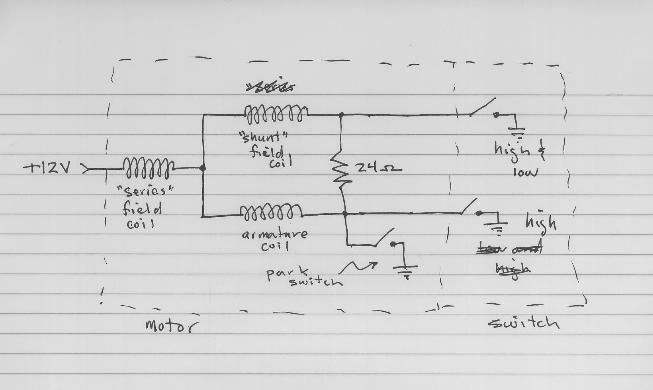 "shunt"
field
coil
+12V
"series"
field
coil
24Ω
high &
low
armature
coil
high
low and
high
park
switch
motor
switch